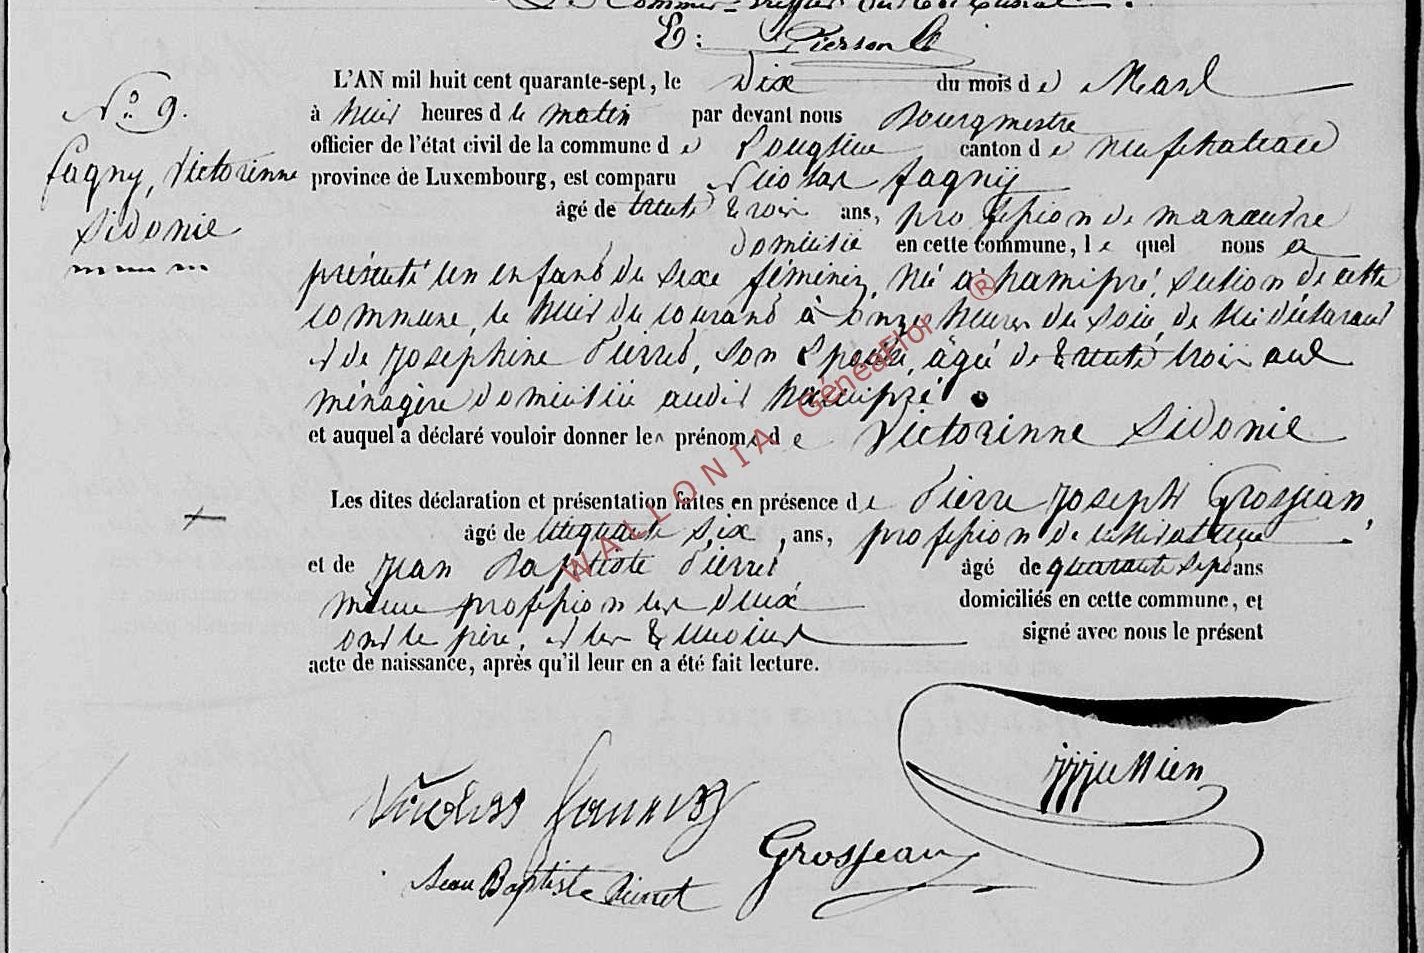 Pierson
L'AN mil huit cent quarante-sept, le Dix du mois de Mars
N° 9.
à huit heures d le matin par devant nous Bourgmestre
officier de l'état civil de la commune de Longlier canton de neufchateau
Fagny, Victorinne
province de Luxembourg, est comparu Nicolas fagny
Sidonie
âgé de trente trois ans, profession de manœuvre
domicilié en cette commune, le quel nous a
présenté un enfant du sexe féminin, né a hamipré, section de cette
commune, le huit du courant à onze heures du soir, de lui déclarant
et de Josephine Pierret, son Epouse, âgée de trente trois ans
ménagère domicilié audit hamipré
et auquel a déclaré vouloir donner les prénoms de Victorinne Sidonie
Les dites déclaration et présentation faites en présence de Pierre Joseph Grosjean,
âgé de cinquante six ans, profession de cultivateur
et de Jean Baptiste Pierret âgé de quarante sept ans
même profession les deux domiciliés en cette commune, et
ont le père, et les témoins signé avec nous le présent
acte de naissance, après qu'il leur en a été fait lecture.
Nicolas
Grosjean
Jean Baptiste Pierret
WALLONIA GénéaFlor ®